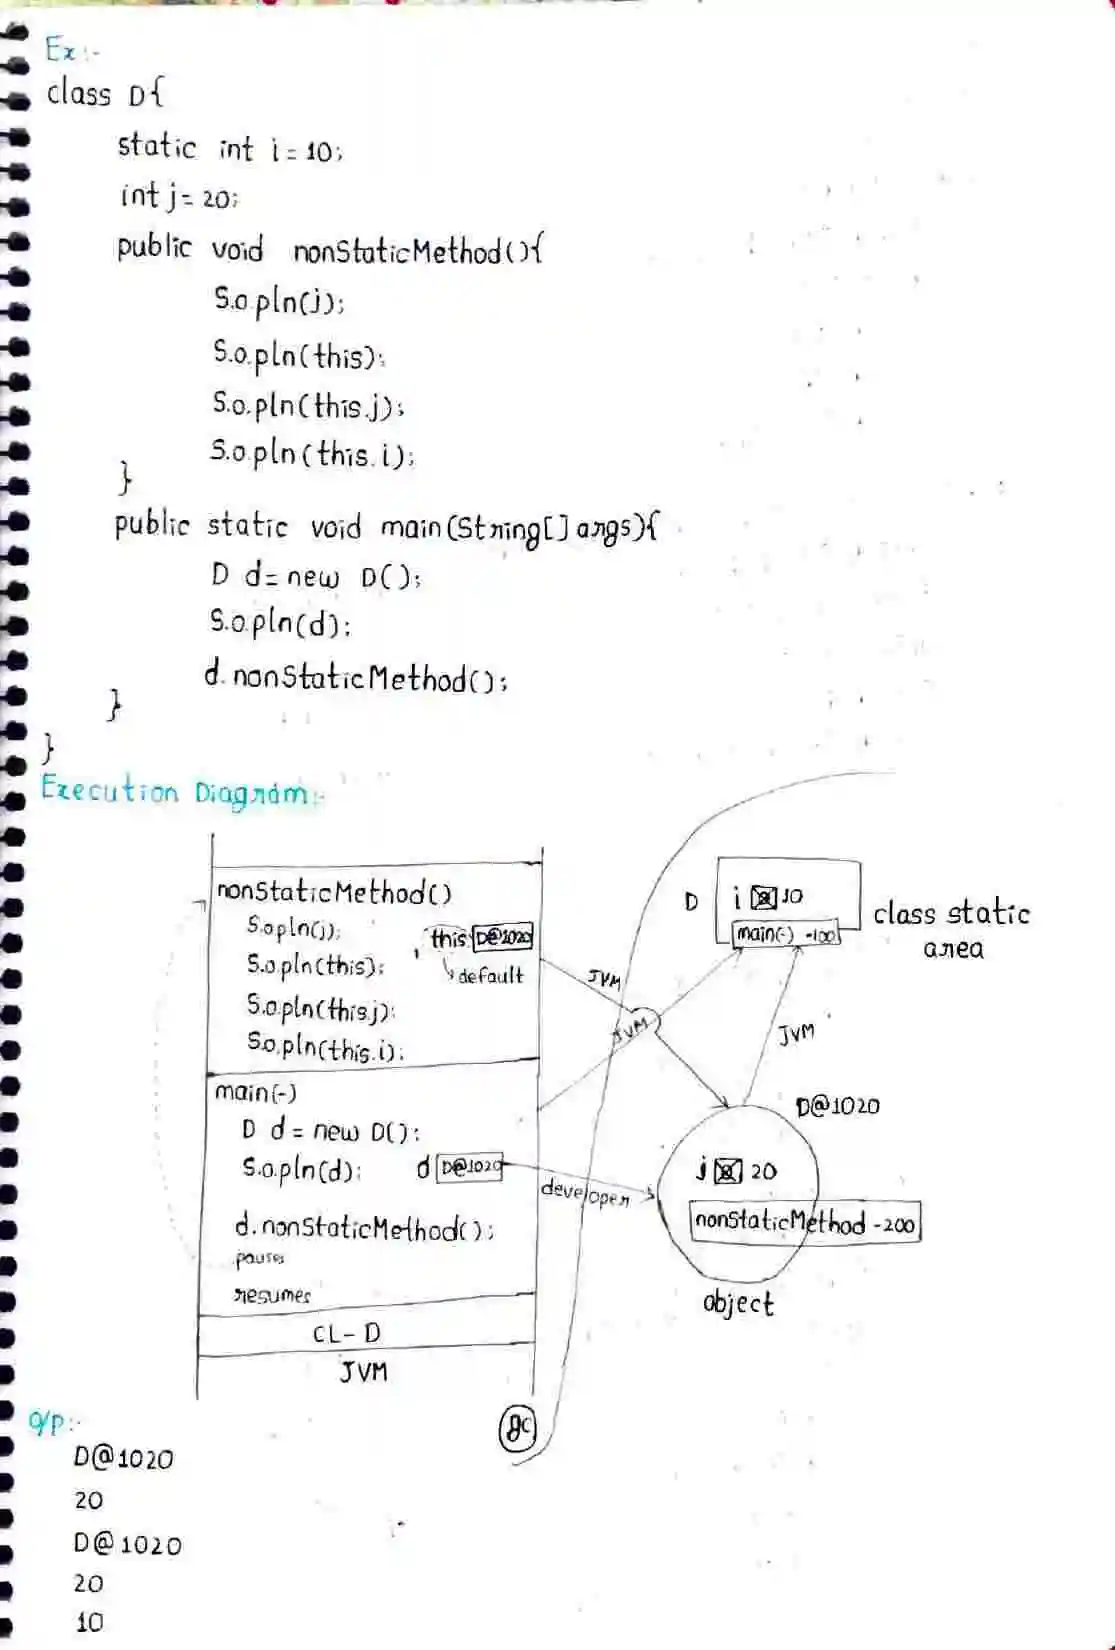 Ex:-
class D{
static int i = 10;
int j = 20;
public void nonStaticMethod(){
S.o.pln(j);
S.o.pln(this);
S.o.pln(this.j);
S.o.pln(this.i);
}
public static void main(String[] args){
D d = new D();
S.o.pln(d);
d.nonStaticMethod();
}
}
Execution Diagram:-
nonStaticMethod()
S.o.pln(j);
this D@1020
S.o.pln(this);
default
S.o.pln(this.j);
S.o.pln(this.i);
main(-)
D d = new D();
S.o.pln(d);
d D@1020
d.nonStaticMethod();
pauses
resumes
CL - D
JVM
gc
JVM
JVM
developer
D
i 0 10
main(-) -100
class static
area
JVM
D@1020
j 0 20
nonStaticMethod -200
object
o/p:-
D@1020
20
D@1020
20
10